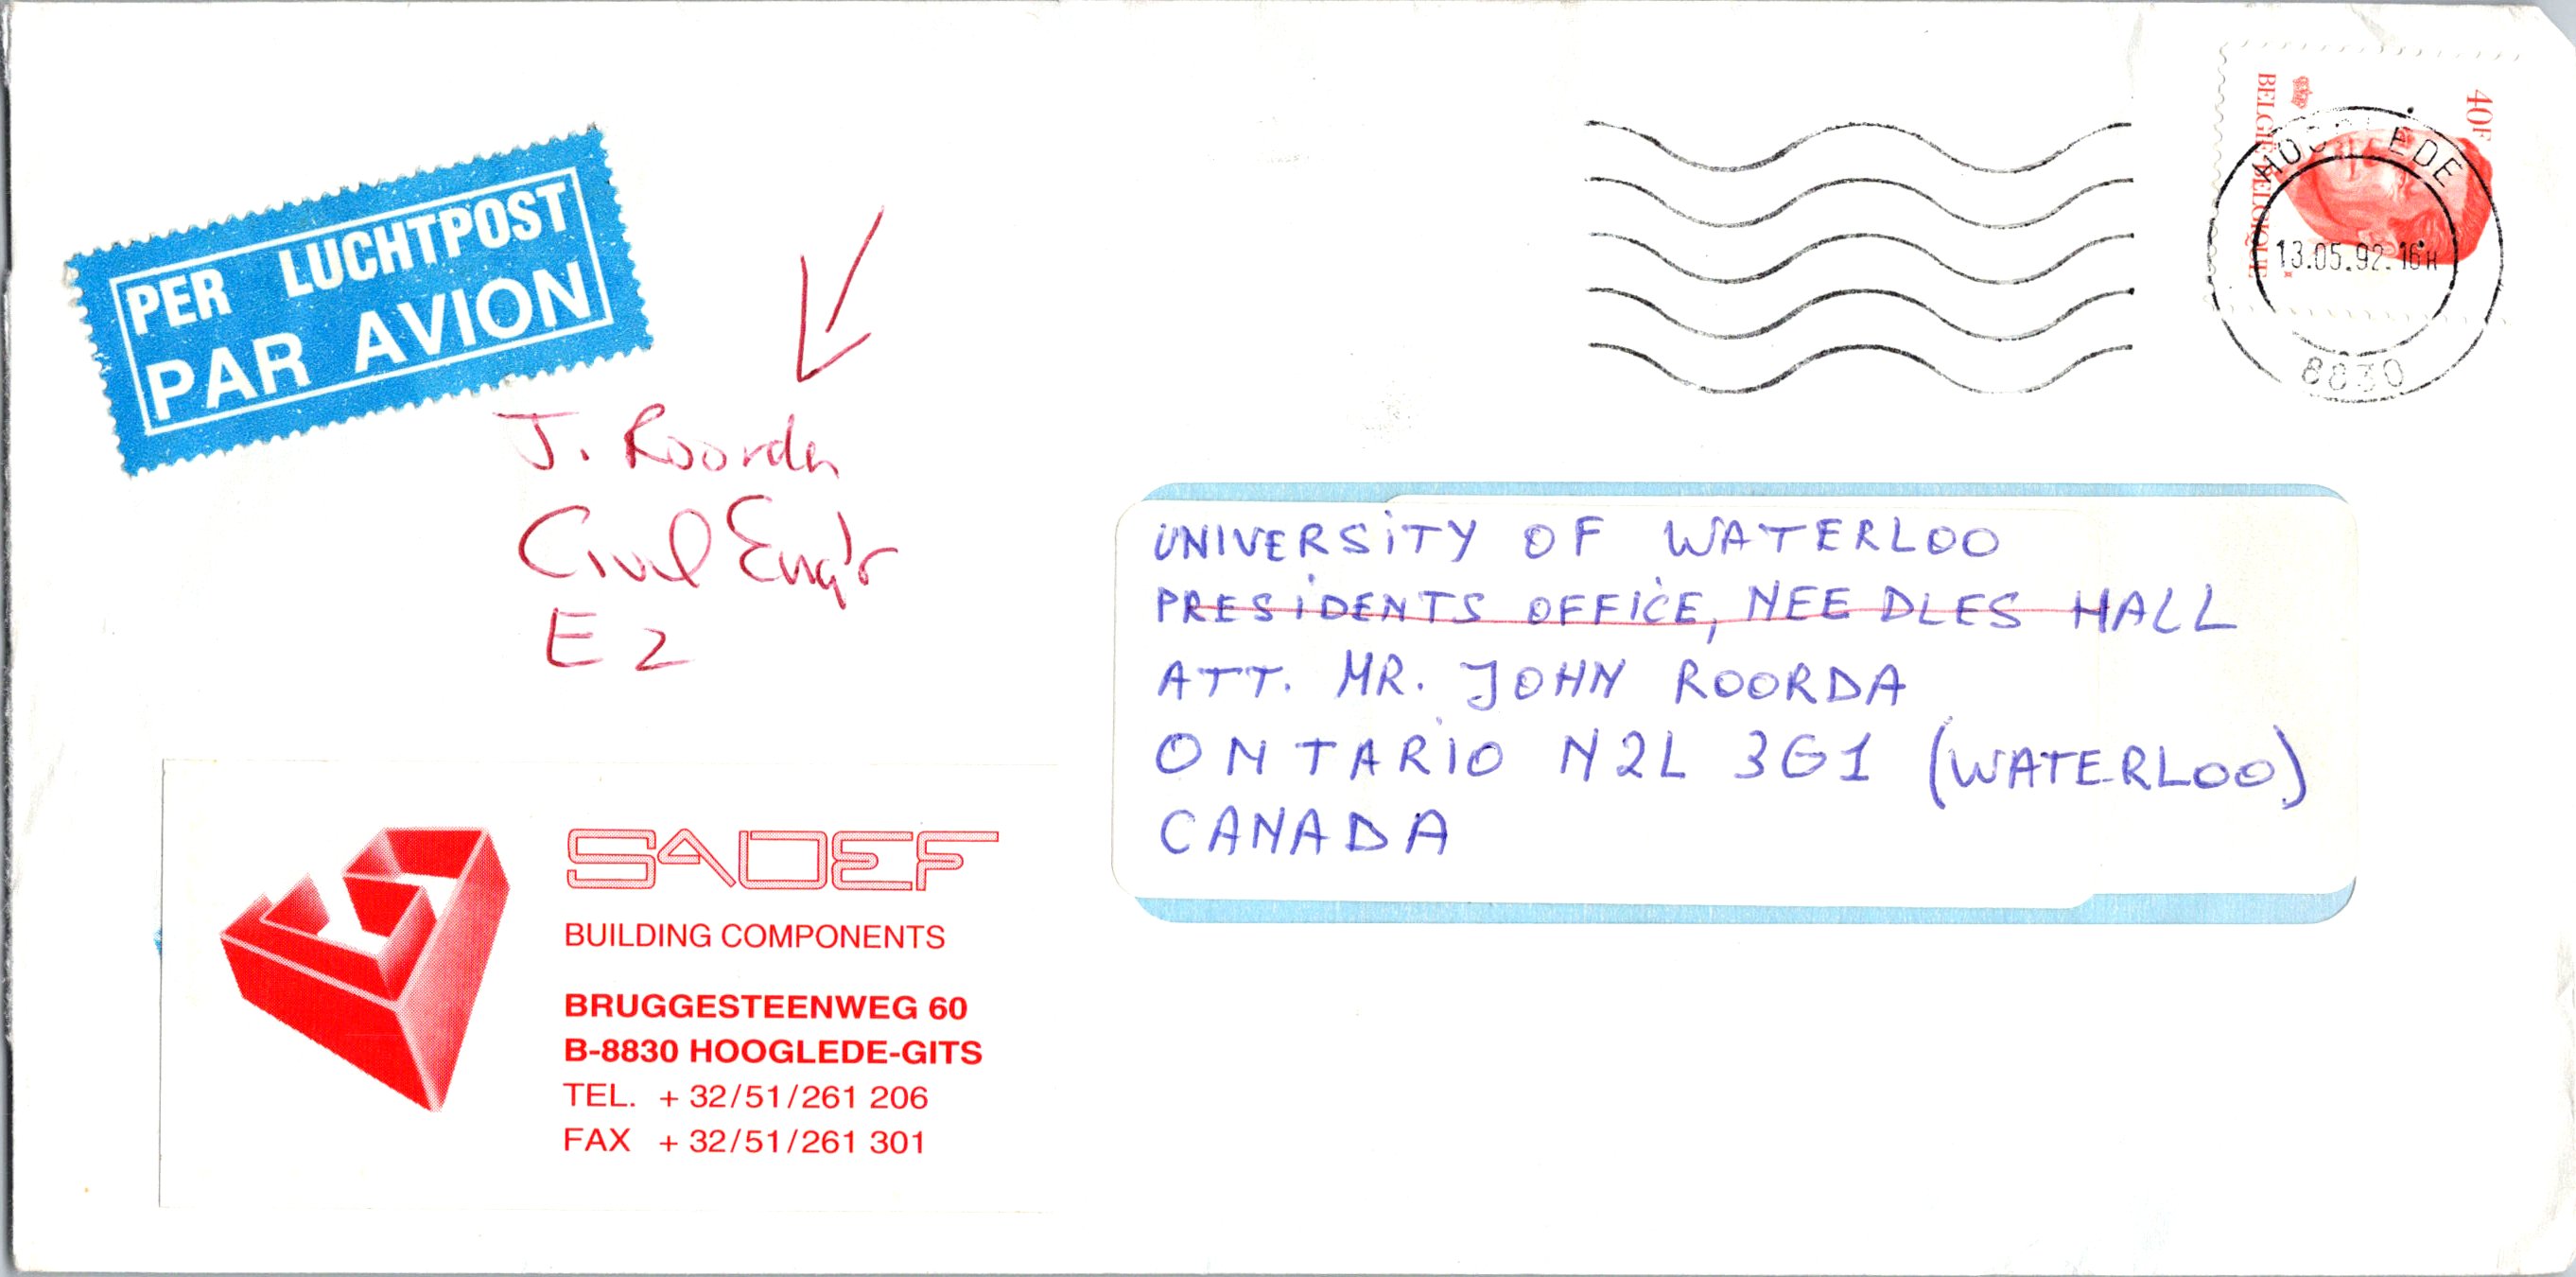 PER LUCHTPOST
PAR AVION
40F
BELGIE BELGIQUE
13.05.92.16H
8830
J. Roorda
Civil Eng'r
E2
UNIVERSITY OF WATERLOO
PRESIDENTS OFFICE, NEEDLES HALL
ATT. MR. JOHN ROORDA
ONTARIO N2L 3G1 (WATERLOO)
CANADA
SADEF
BUILDING COMPONENTS
BRUGGESTEENWEG 60
B-8830 HOOGLEDE-GITS
TEL. + 32/51/261 206
FAX + 32/51/261 301